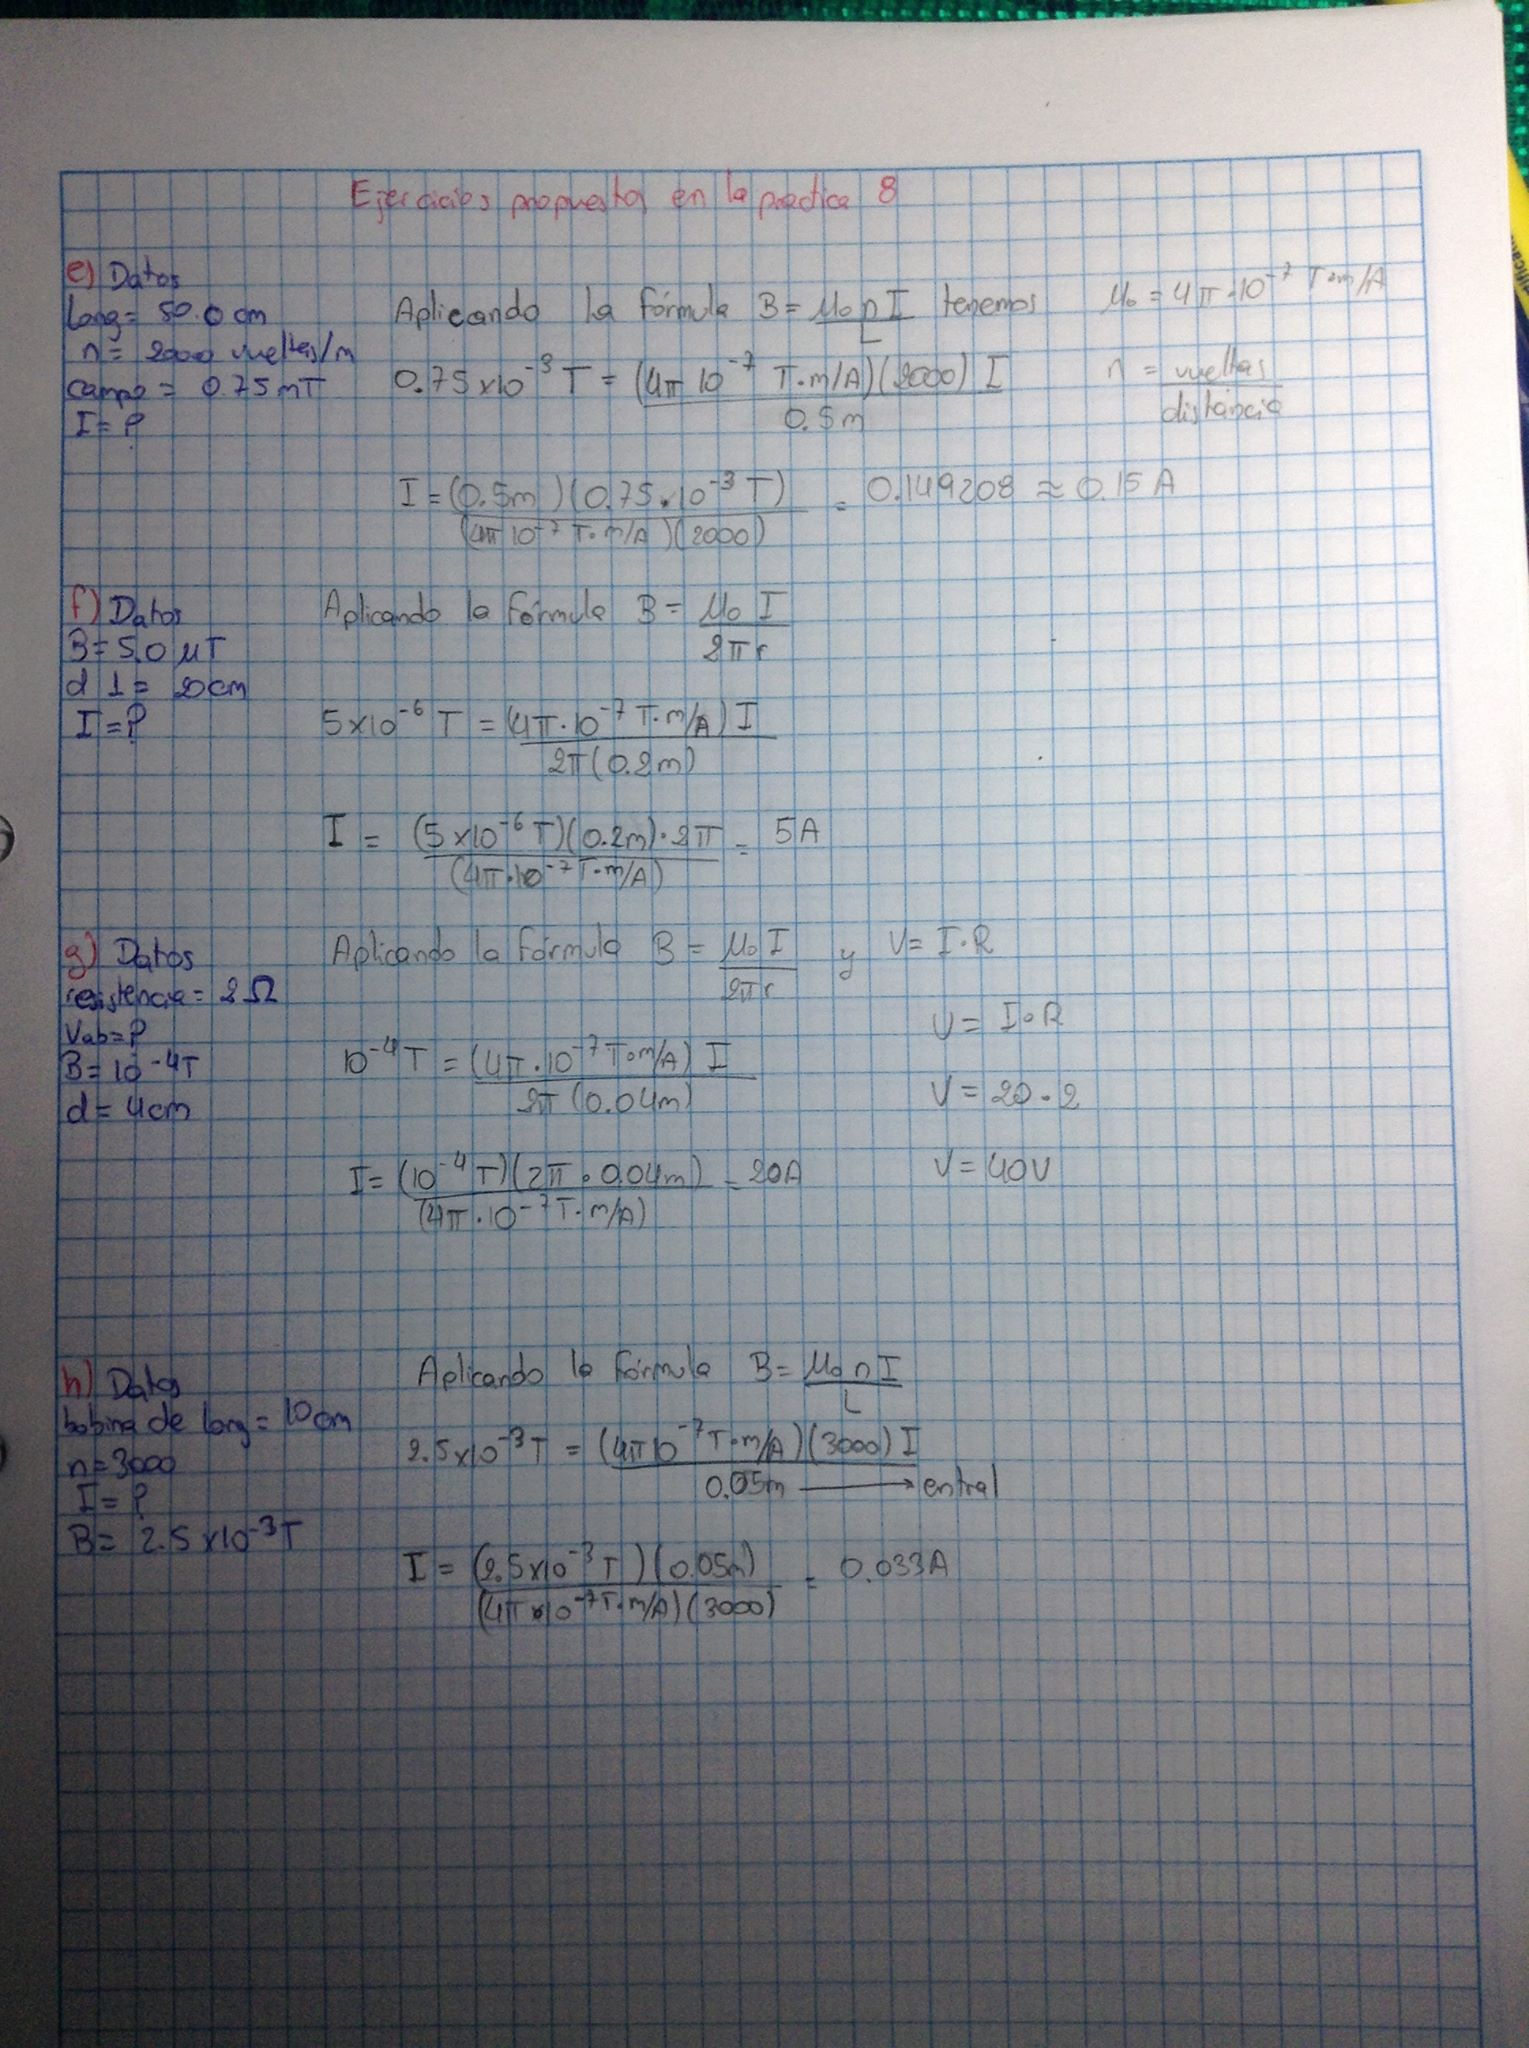 Ejercicios propuestos en la practica 8
e) Datos
Long = 50.0 cm
n = 2000 vueltas/m
campo = 0.75 mT
I = ?
Aplicando la fórmula B = μ₀ n I / L tenemos
μ₀ = 4π·10⁻⁷ T·m/A
0.75 x10⁻³ T = (4π 10⁻⁷ T·m/A)(2000) I / 0.5m
n = vueltas / distancia
I = (0.5m)(0.75·10⁻³ T) / (4π 10⁻⁷ T·m/A)(2000) = 0.149208 ≈ 0.15 A
f) Datos
B = 5.0 μT
d ⊥ = 20cm
I = ?
Aplicando la fórmula B = μ₀ I / 2π r
5x10⁻⁶ T = (4π·10⁻⁷ T·m/A) I / 2π(0.2m)
I = (5x10⁻⁶ T)(0.2m)·2π / (4π·10⁻⁷ T·m/A) = 5A
g) Datos
resistencia = 2 Ω
Vab = ?
B = 10⁻⁴T
d = 4cm
Aplicando la fórmula B = μ₀ I / 2π r y V = I·R
V = I·R
10⁻⁴ T = (4π·10⁻⁷ T·m/A) I / 2π (0.04m)
V = 20·2
I = (10⁻⁴ T)(2π·0.04m) / (4π·10⁻⁷ T·m/A) = 20A
V = 40V
h) Datos
bobina de long = 10cm
n = 3000
I = ?
B = 2.5 x10⁻³T
Aplicando la fórmula B = μ₀ n I / L
2.5x10⁻³T = (4π10⁻⁷T·m/A)(3000) I / 0.05m → entral
I = (2.5x10⁻³ T)(0.05m) / (4πx10⁻⁷T·m/A)(3000) = 0.033A